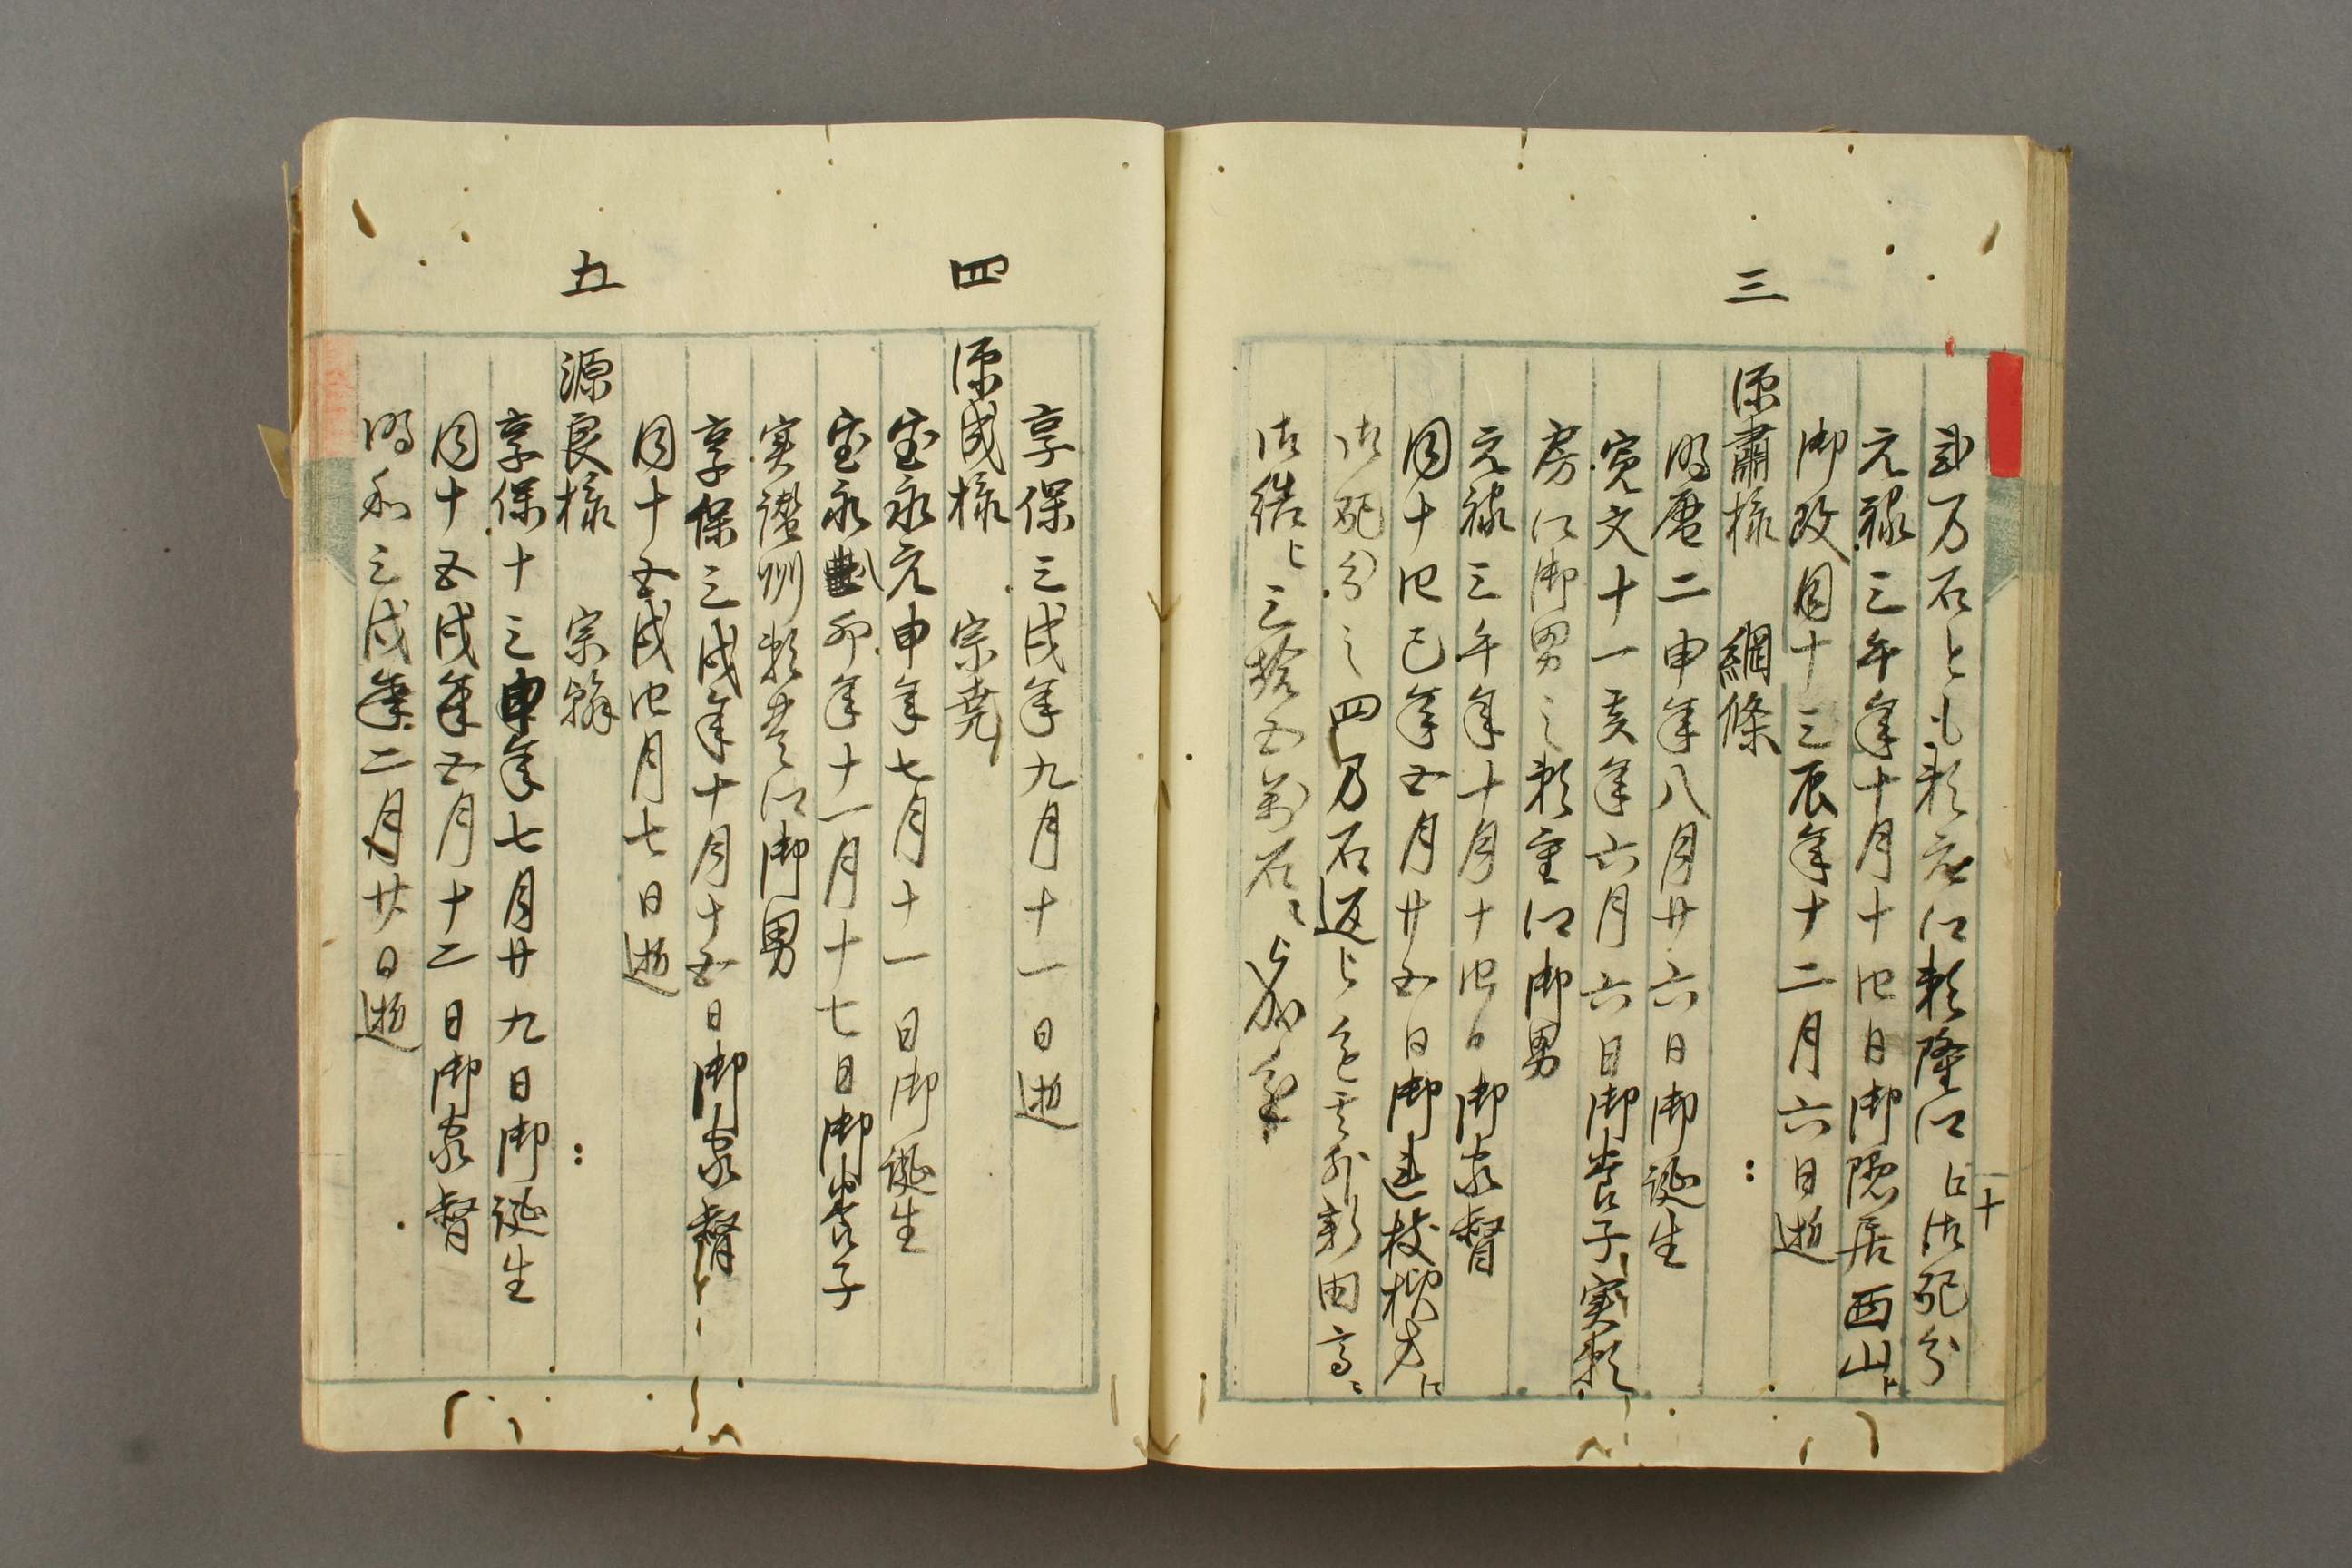 十
弐万石とも頼元公頼隆公へ御配分
元禄三午年十月十四日御隠居西山と
御改同十三辰年十二月六日逝
三
源肅様 綱條
明暦二申年八月廿六日御誕生
寛文十一亥年六月六日御養子実頼
房公御男之頼重公御男
元禄三午年十月十四日御家督
同十四巳年五月廿五日御連枝様方に
御配分之四万石返上
御結ニ三拾五萬石ニ
享保三戌年九月十一日逝
四
源成様 宗堯
宝永元申年七月十一日御誕生
宝永卯年十一月十七日御養子
実讃州頼豊公御男
享保三戌年十月十五日御家督
同十五戌四月七日逝
五
源良様 宗翰
享保十三申年七月廿九日御誕生
同十五戌年五月十二日御家督
明和三戌年二月廿日逝